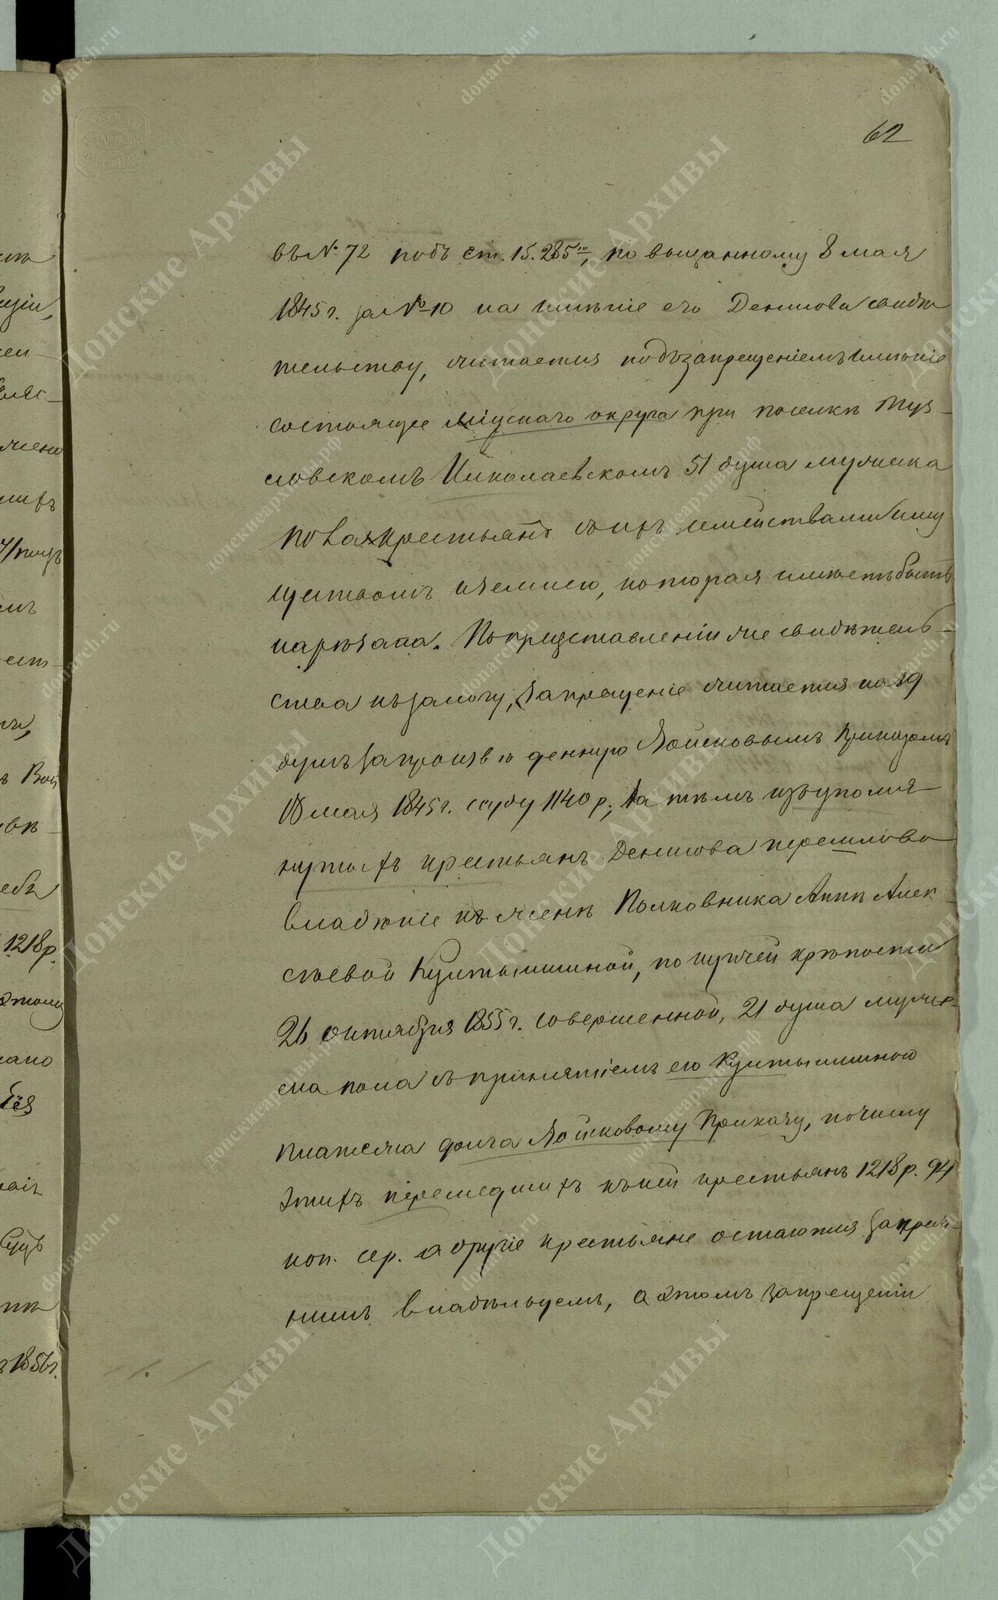 62
въ № 72 подъ ст. 15.285ю, по выданному 8 мая
1845 г. за № 10 на имѣніе его Денисова свидѣ
тельству, считается подъ запрещеніемъ имѣніе
состоящее Міускаго округа при поселкѣ Туз-
ловскомъ Николаевскомъ 51 душа мужеска
пола крестьянъ съ ихъ семействами иму
ществомъ и землею, которая имѣетъ быть
нарѣзана. По представленіи же свидѣтель-
ства къ залогу, запрещеніе считается на 19
душъ за произведенную Войсковымъ Приказомъ
18 мая 1845 г. ссуду 1140 р., за тѣмъ изъ упомя-
нутыхъ крестьянъ Денисова перешло во
владѣніе къ женѣ Полковника Аннѣ Алек-
сѣевой Култышиной, по купчей крѣпости
26 октября 1855 г. совершенной, 21 душа мужес-
ка пола съ принятіемъ ею Култышиною
платежа долга Войсковому Приказу, по числу
этихъ перешедшихъ къ ней крестьянъ 1218 р. 94
коп. сер. а другіе крестьяне остаются за преж-
нимъ владѣльцемъ, а этомъ запрещеніи
1218 р.
1856 г.
Донские Архивы
donarch.ru
донскиеархивы.рф